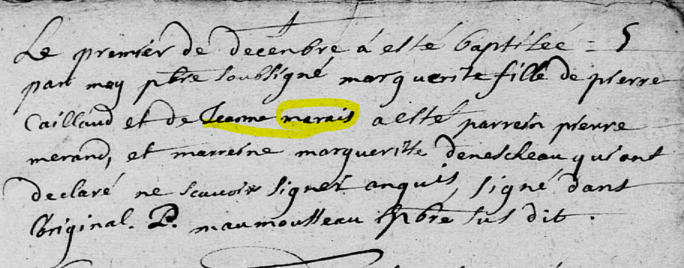 Le premier de decenbre á esté baptiseé = 5
par moy pbre soubsigné marguerite fille de pierre
Caillaud et de Jeanne marais a esté parrein pierre
merand, et marreine margueritte denescheau qui ont
declaré ne scavoir signer enquis, signé dans
l'original. P. maumousseau pbre sus dit.